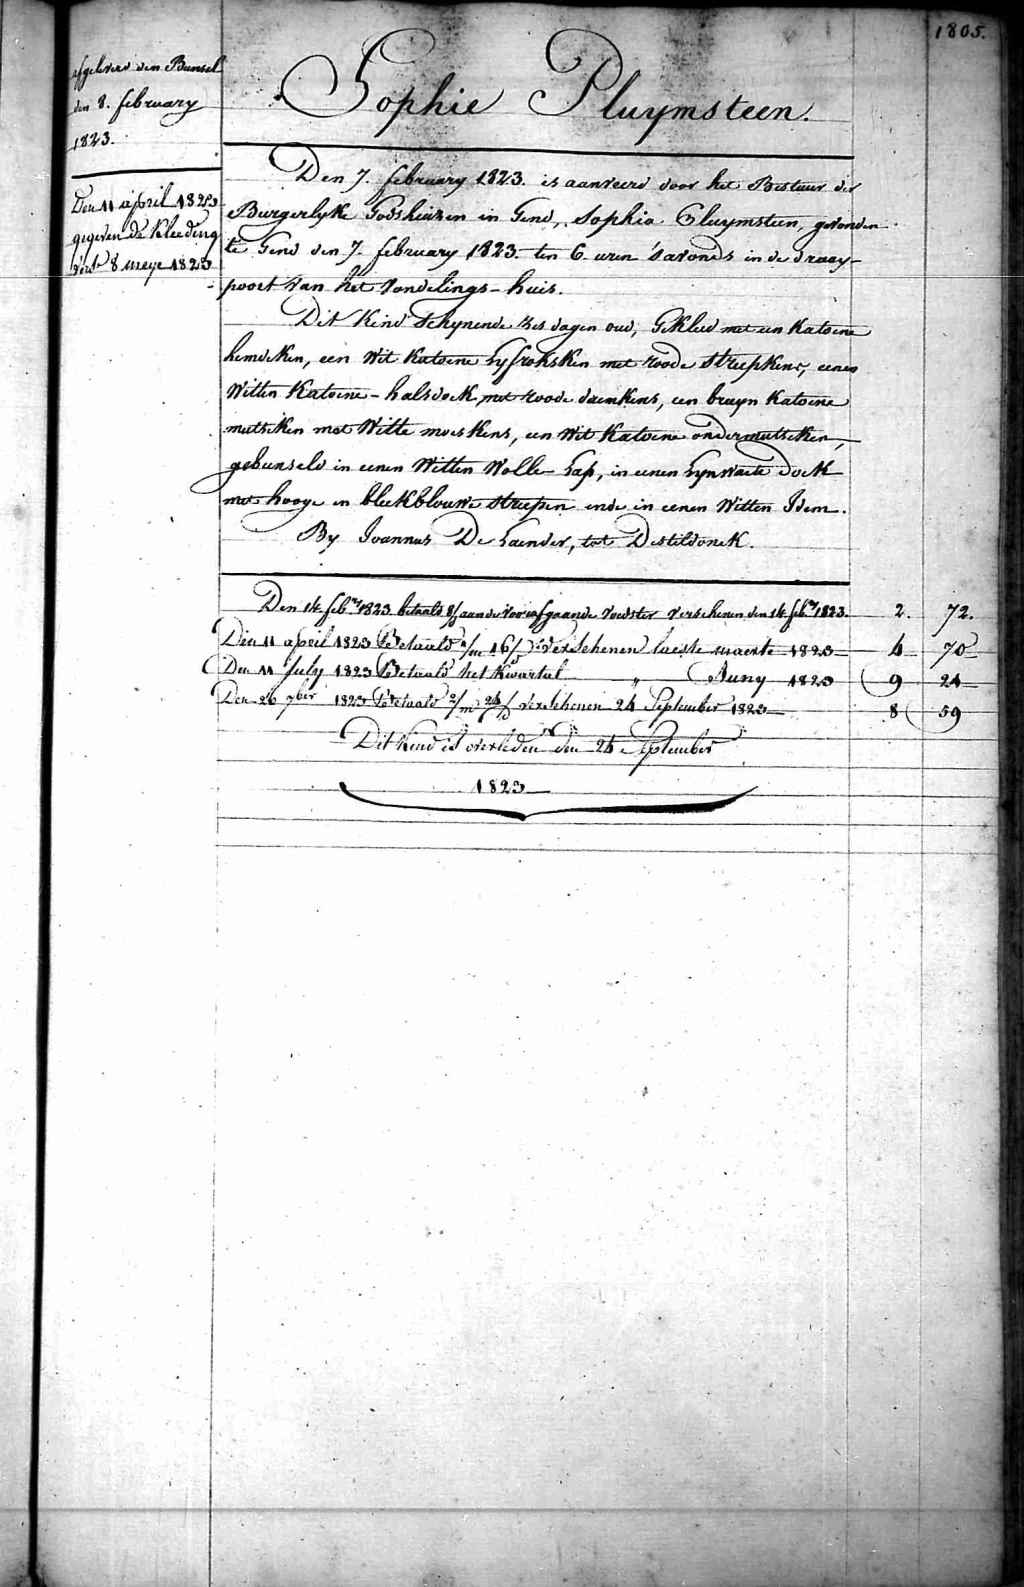 1805.
afgelevert den Bunsel
den 8. february
1823.
Den 11 april 1823
gegeven de kleeding
8 meye 1823
Sophie Pluymsteen.
Den 7. february 1823. is aanveerd door het Bestuur der
Burgerlyke Godshuizen in Gend, Sophia Pluymsteen, gevonden
te Gend den 7. february 1823. ten 6 uren 'savonds in de draay-
poort van het vondelings-huis.
Dit kind schynende zes dagen oud, gekleed met een katoene
hemdeken, een wit katoene Lyfrokxken met roode streepkens, eenen
witten katoene-halsdoek met roode , een bruyn katoene
mutsken met witte moeskens, een wit katoene ondermutseken,
gebunseld in eenen witten wolle Lap, in eenen Lynwaete doek
met hooge en bleekblouwe streepen ende in eenen witten Idem.
By Joannes De Laender, tot Desteldonck.
Den 14 feb. 1823 betaald 8/ aan de voorafgaande voedster verschenen den 14 feb. 1823. 2. 72.
Den 11 april 1823 Betaald 1/m 16/d verschenen laeste maerte 1823 4 70
Den 11 July 1823 Betaald het kwartal " Juny 1823 9 24
Den 26 7ber 1823 Betaald 2/m 24/d verschenen 24 September 1823 8 59
Dit kind is overleden den 24 September
1823